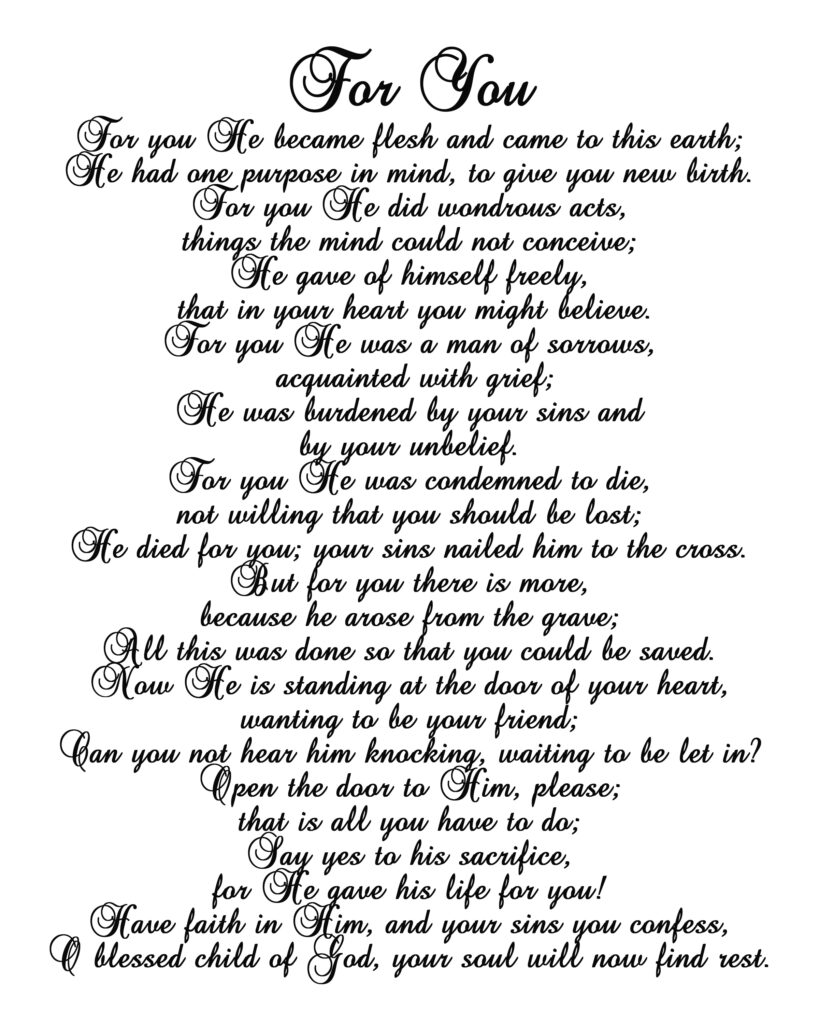 For You
For you He became flesh and came to this earth;
He had one purpose in mind, to give you new birth.
For you He did wondrous acts,
things the mind could not conceive;
He gave of himself freely,
that in your heart you might believe.
For you He was a man of sorrows,
acquainted with grief;
He was burdened by your sins and
by your unbelief.
For you He was condemned to die,
not willing that you should be lost;
He died for you; your sins nailed him to the cross.
But for you there is more,
because he arose from the grave;
All this was done so that you could be saved.
Now He is standing at the door of your heart,
wanting to be your friend;
Can you not hear him knocking, waiting to be let in?
Open the door to Him, please;
that is all you have to do;
Say yes to his sacrifice,
for He gave his life for you!
Have faith in Him, and your sins you confess,
O blessed child of God, your soul will now find rest.